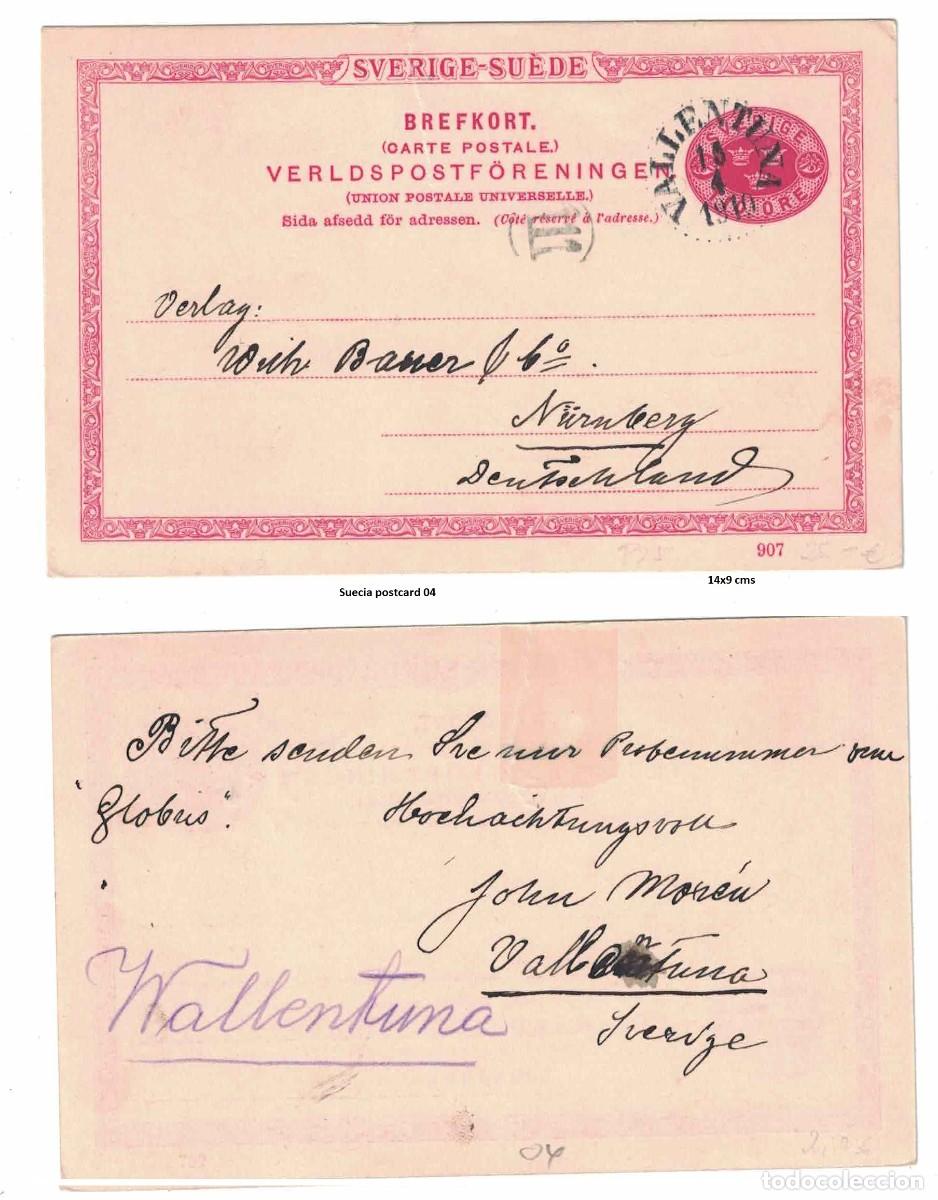 SVERIGE-SUÈDE
BREFKORT.
(CARTE POSTALE.)
VERLDSPOSTFÖRENINGEN
(UNION POSTALE UNIVERSELLE.)
Sida afsedd för adressen. (Côté réservé à l'adresse.)
VALLENTUNA
SVERIGE
ÖRE
Verlag:
Wilh Bauer & Co.
Nürnberg
Deutschland
907
Suecia postcard 04
14x9 cms
Bitte senden Sie mir Probenummer vom
"Globus".
Hochachtungsvoll
John Morén
Vallentuna
Sverige
Wallentuna
04
todocoleccion